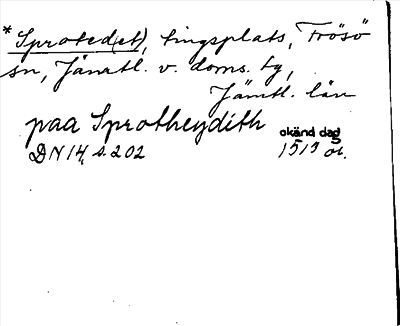 * Sproted(et), tingsplats, Frösö
sn, Jämtl. v. doms. tg,
Jämtl. län
paa Sprotheydith okänd dag
DN 14, s. 202 1513 or.